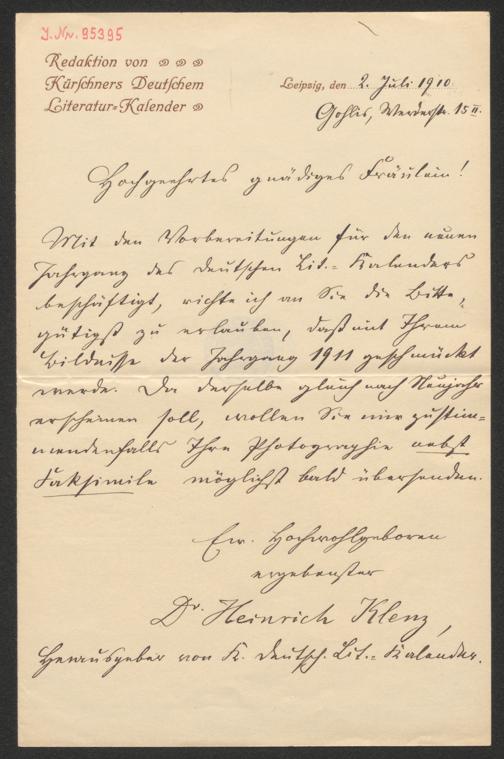 J. Nr. 95395
Redaktion von
Kürschners Deutschem
Literatur-Kalender
Leipzig, den 2. Juli 1910.
Gohlis, Werderstr. 15 II.
Hochgeehrtes gnädiges Fräulein!
Mit den Vorbereitungen für den neuen
Jahrgang des Deutschen Lit.-Kalenders
beschäftigt, richte ich an Sie die Bitte,
gütigst zu erlauben, daß mit Ihrem
Bildnisse der Jahrgang 1911 geschmückt
werde. Da derselbe gleich nach Neujahr
erscheinen soll, wollen Sie mir zustim-
mendenfalls Ihre Photographie nebst
Faksimile möglichst bald übersenden.
Ew. Hochwohlgeboren
ergebenster
Dr. Heinrich Klenz,
Herausgeber von K. Deutsch. Lit.-Kalender.